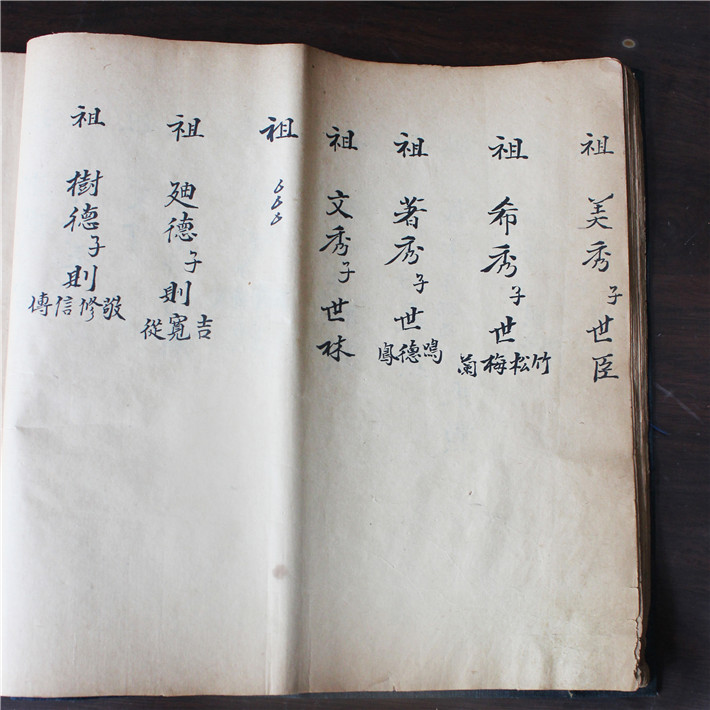 祖 美秀子世臣
祖 希秀子世竹松梅菊
祖 著秀子世鳴德鳳
祖 文秀子世林
祖
祖 廸德子則吉寬從
祖 樹德子則敬修信傳